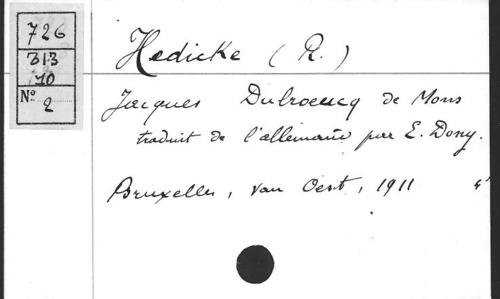 726
313
10
Nº 2
Hedicke (R.)
Jacques Dubroeucq de Mons
traduit de l'allemand par E. Dony.
Bruxelles, van Oest, 1911 4°